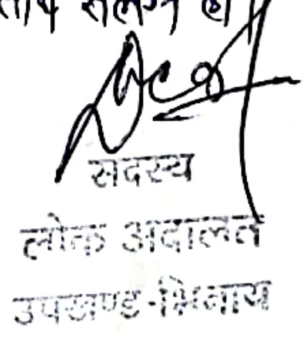 संलग्न है
सदस्य
लोक अदालत
उपखण्ड-भिनाय